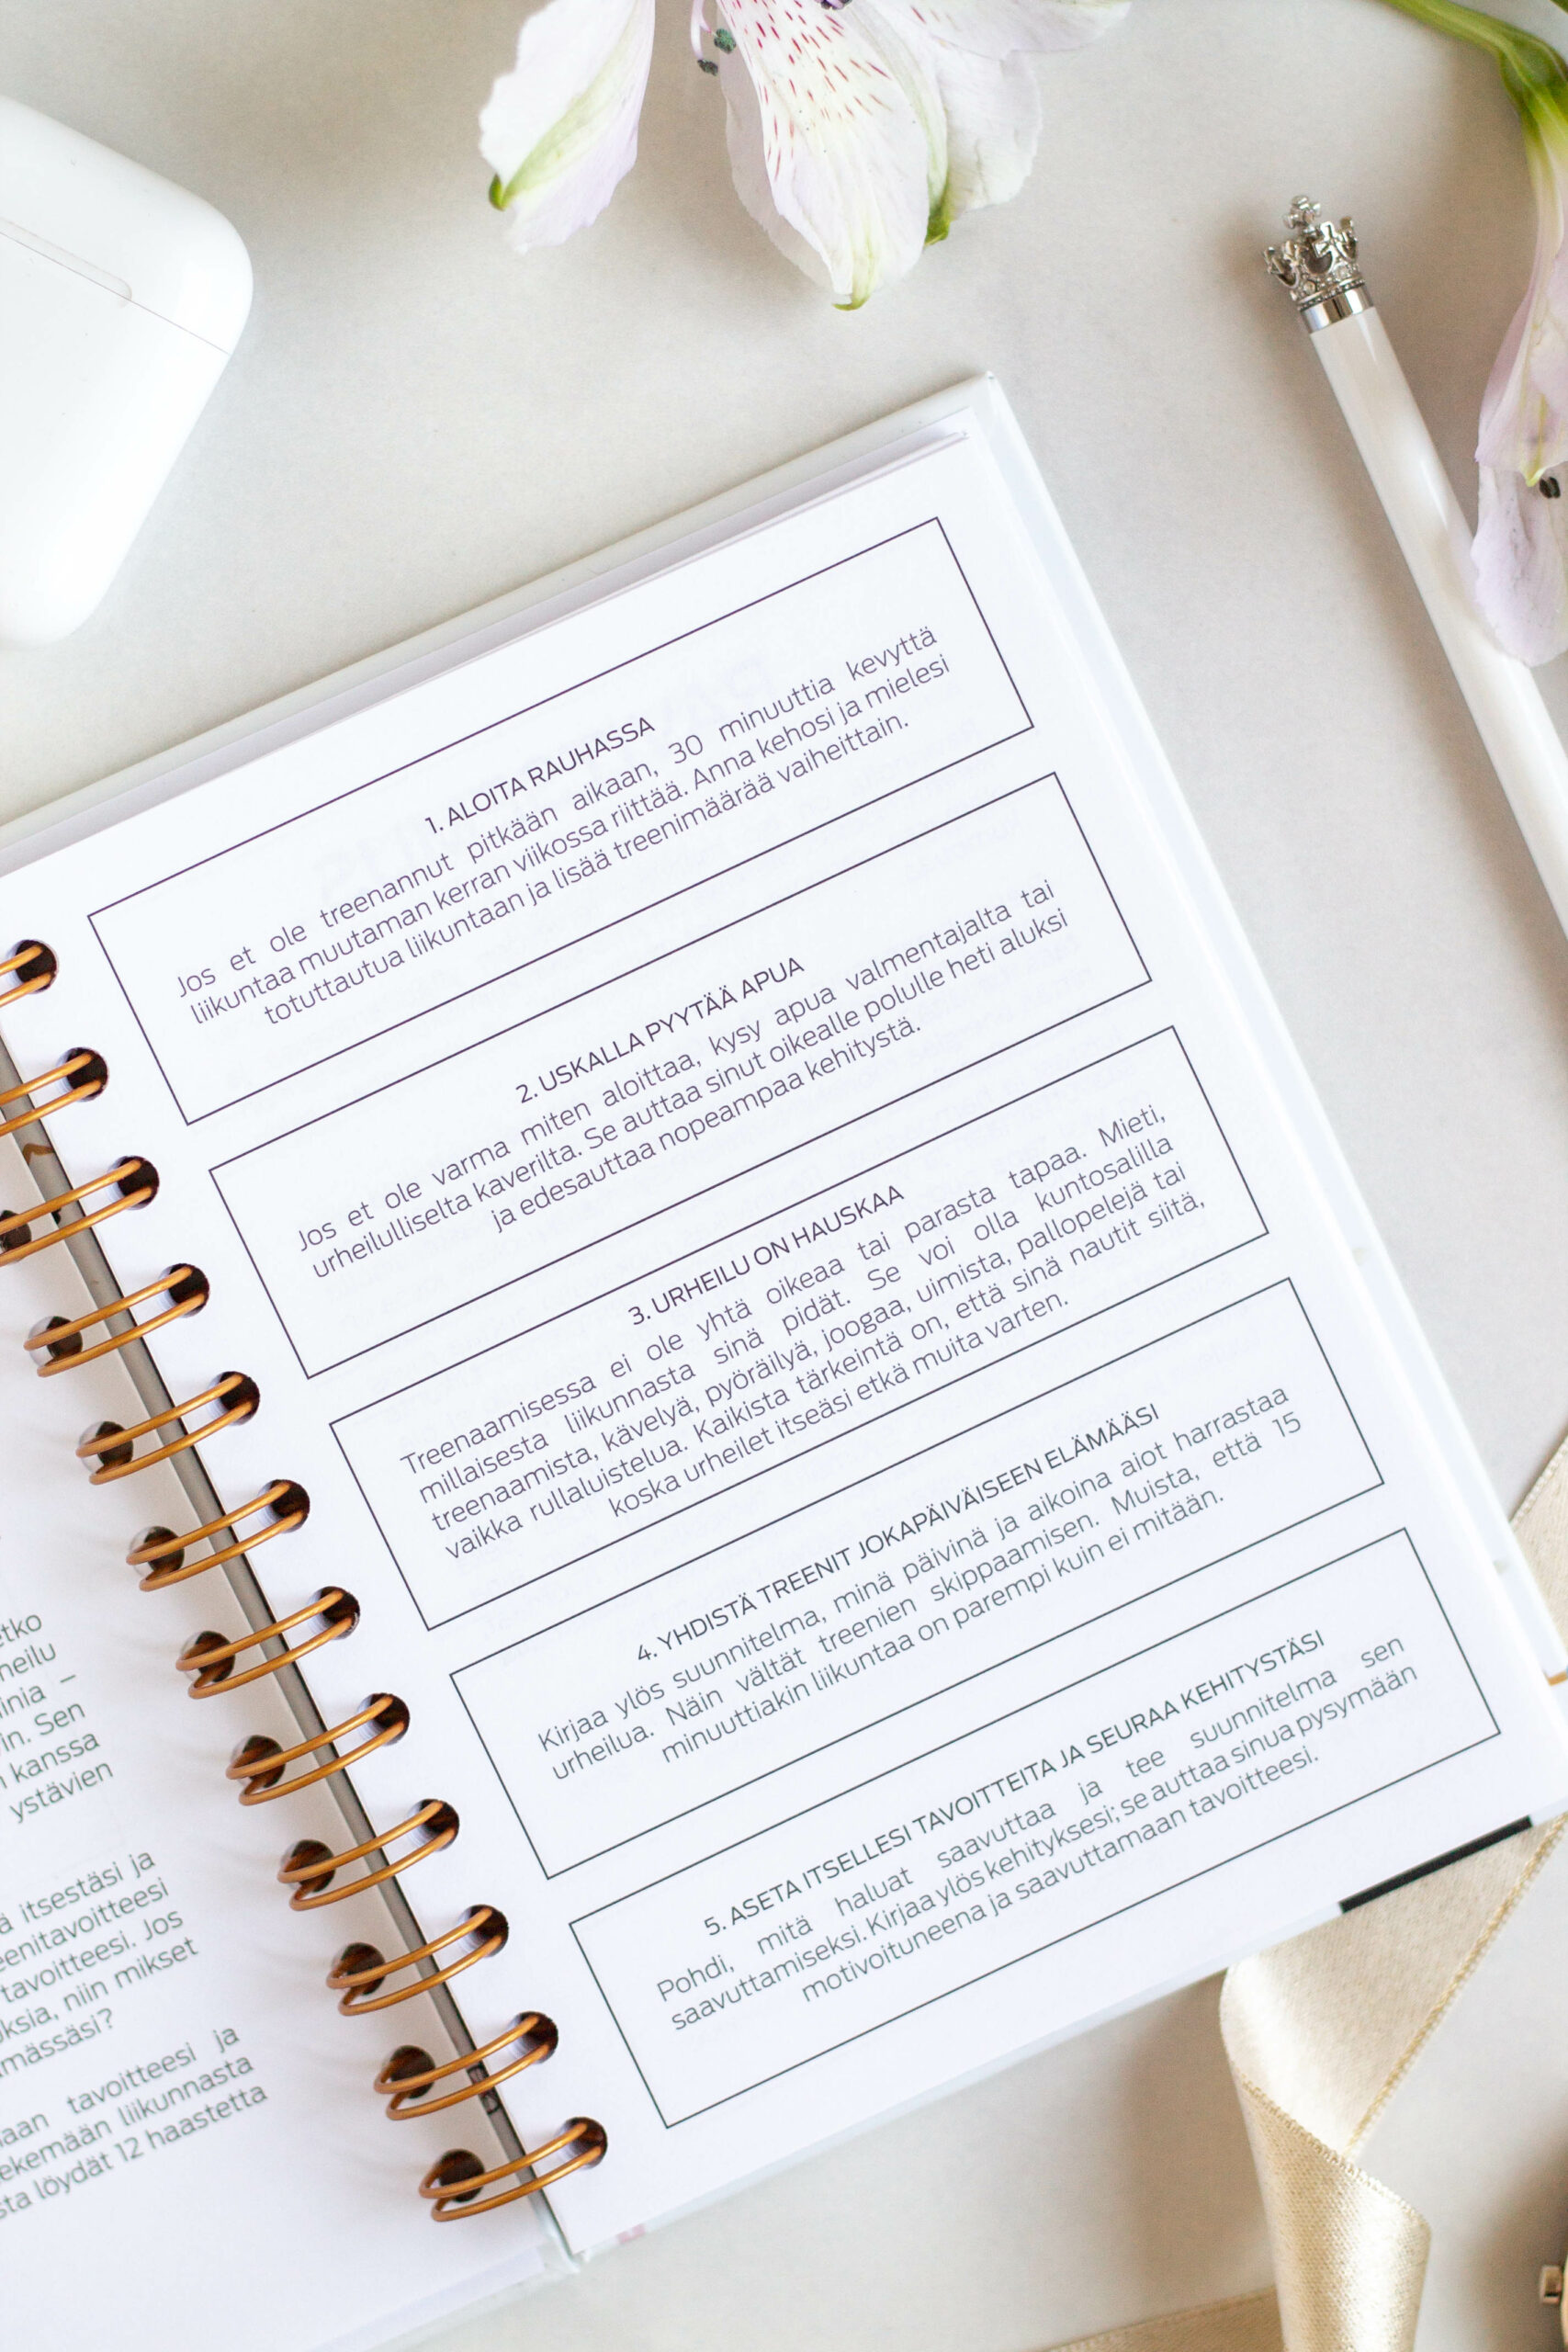 etko
heilu
inia –
in. Sen
kanssa
ystävien
itsestäsi ja
eenitavoitteesi
tavoitteesi. Jos
ksia, niin mikset
mässäsi?
aan tavoitteesi ja
ekemään liikunnasta
sta löydät 12 haastetta
1. ALOITA RAUHASSA
Jos et ole treenannut pitkään aikaan, 30 minuuttia kevyttä
liikuntaa muutaman kerran viikossa riittää. Anna kehosi ja mielesi
totuttautua liikuntaan ja lisää treenimäärää vaiheittain.
2. USKALLA PYYTÄÄ APUA
Jos et ole varma miten aloittaa, kysy apua valmentajalta tai
urheilulliselta kaverilta. Se auttaa sinut oikealle polulle heti aluksi
ja edesauttaa nopeampaa kehitystä.
3. URHEILU ON HAUSKAA
Treenaamisessa ei ole yhtä oikeaa tai parasta tapaa. Mieti,
millaisesta liikunnasta sinä pidät. Se voi olla kuntosalilla
treenaamista, kävelyä, pyöräilyä, joogaa, uimista, pallopelejä tai
vaikka rullaluistelua. Kaikista tärkeintä on, että sinä nautit siitä,
koska urheilet itseäsi etkä muita varten.
4. YHDISTÄ TREENIT JOKAPÄIVÄISEEN ELÄMÄÄSI
Kirjaa ylös suunnitelma, minä päivinä ja aikoina aiot harrastaa
urheilua. Näin vältät treenien skippaamisen. Muista, että 15
minuuttiakin liikuntaa on parempi kuin ei mitään.
5. ASETA ITSELLESI TAVOITTEITA JA SEURAA KEHITYSTÄSI
Pohdi, mitä haluat saavuttaa ja tee suunnitelma sen
saavuttamiseksi. Kirjaa ylös kehityksesi; se auttaa sinua pysymään
motivoituneena ja saavuttamaan tavoitteesi.